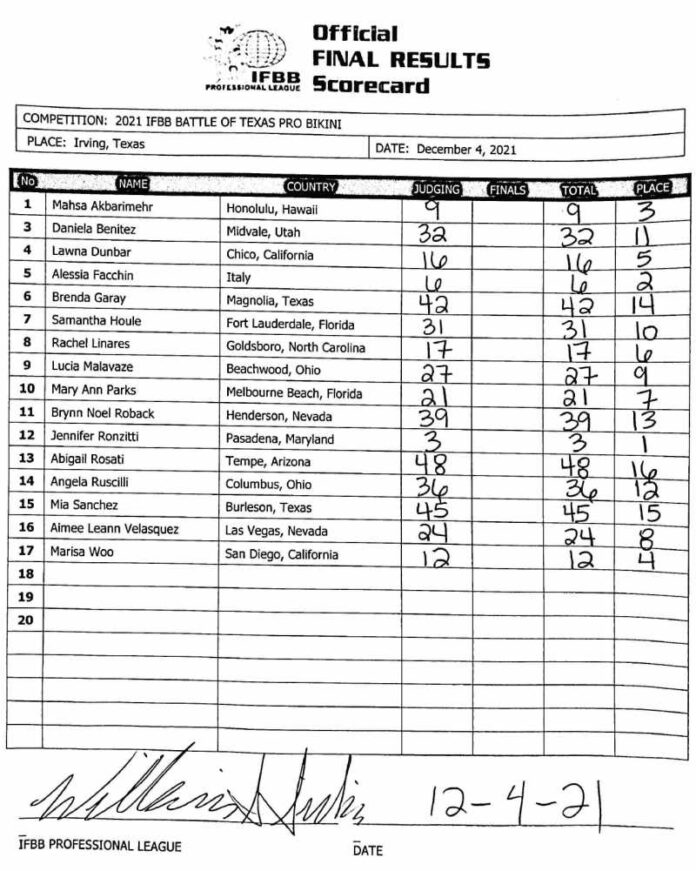 Official
FINAL RESULTS
Scorecard
IFBB
PROFESSIONAL LEAGUE
COMPETITION: 2021 IFBB BATTLE OF TEXAS PRO BIKINI
PLACE: Irving, Texas DATE: December 4, 2021
No NAME COUNTRY JUDGING FINALS TOTAL PLACE
1 Mahsa Akbarimehr Honolulu, Hawaii 9 9 3
3 Daniela Benitez Midvale, Utah 32 32 11
4 Lawna Dunbar Chico, California 16 16 5
5 Alessia Facchin Italy 6 6 2
6 Brenda Garay Magnolia, Texas 42 42 14
7 Samantha Houle Fort Lauderdale, Florida 31 31 10
8 Rachel Linares Goldsboro, North Carolina 17 17 6
9 Lucia Malavaze Beachwood, Ohio 27 27 9
10 Mary Ann Parks Melbourne Beach, Florida 21 21 7
11 Brynn Noel Roback Henderson, Nevada 39 39 13
12 Jennifer Ronzitti Pasadena, Maryland 3 3 1
13 Abigail Rosati Tempe, Arizona 48 48 16
14 Angela Ruscilli Columbus, Ohio 36 36 12
15 Mia Sanchez Burleson, Texas 45 45 15
16 Aimee Leann Velasquez Las Vegas, Nevada 24 24 8
17 Marisa Woo San Diego, California 12 12 4
18
19
20
12-4-21
IFBB PROFESSIONAL LEAGUE DATE